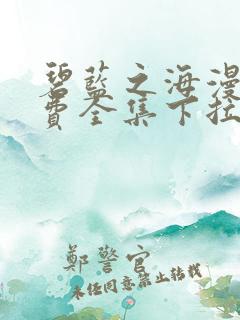 碧蓝之海漫
费全集下拉
鄭警官
未经同意禁止转载